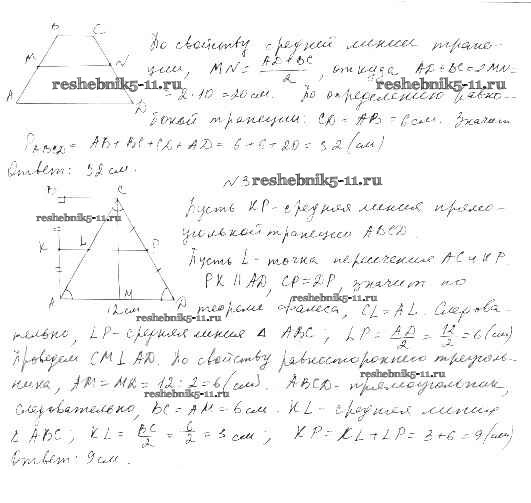 B C
По свойству средней линии трапе-
M N
ции, MN = AD+BC / 2, откуда AD+BC=2MN=
reshebnik5-11.ru reshebnik5-11.ru
A D
= 2·10 = 20 см. По определению равно-
бокой трапеции: CD = AB = 6 см. Значит
P ABCD = AB + BC + CD + AD = 6 + 6 + 20 = 32 (см)
Ответ: 32 см.
N3 reshebnik5-11.ru
B C
Пусть KP - средняя линия прямо-
reshebnik5-11.ru
угольной трапеции ABCD.
K L
Пусть L - точка пересечения AC и KP.
PK || AD, CP = DP, значит по
reshebnik5-11.ru
A M D
12 см
теореме Фалеса, CL = AL. Следова-
тельно, LP - средняя линия Δ ABC; LP = AD/2 = 12/2 = 6 (см)
Проведем CM ⊥ AD. По свойству равностороннего треуголь-
ника, AM = MD = 12 : 2 = 6 (см). ABCD - прямоугольник,
следовательно, BC = AM = 6 см. KL - средняя линия
Δ ABC; KL = BC/2 = 6/2 = 3 см; KP = KL + LP = 3 + 6 = 9 (см)
Ответ: 9 см.